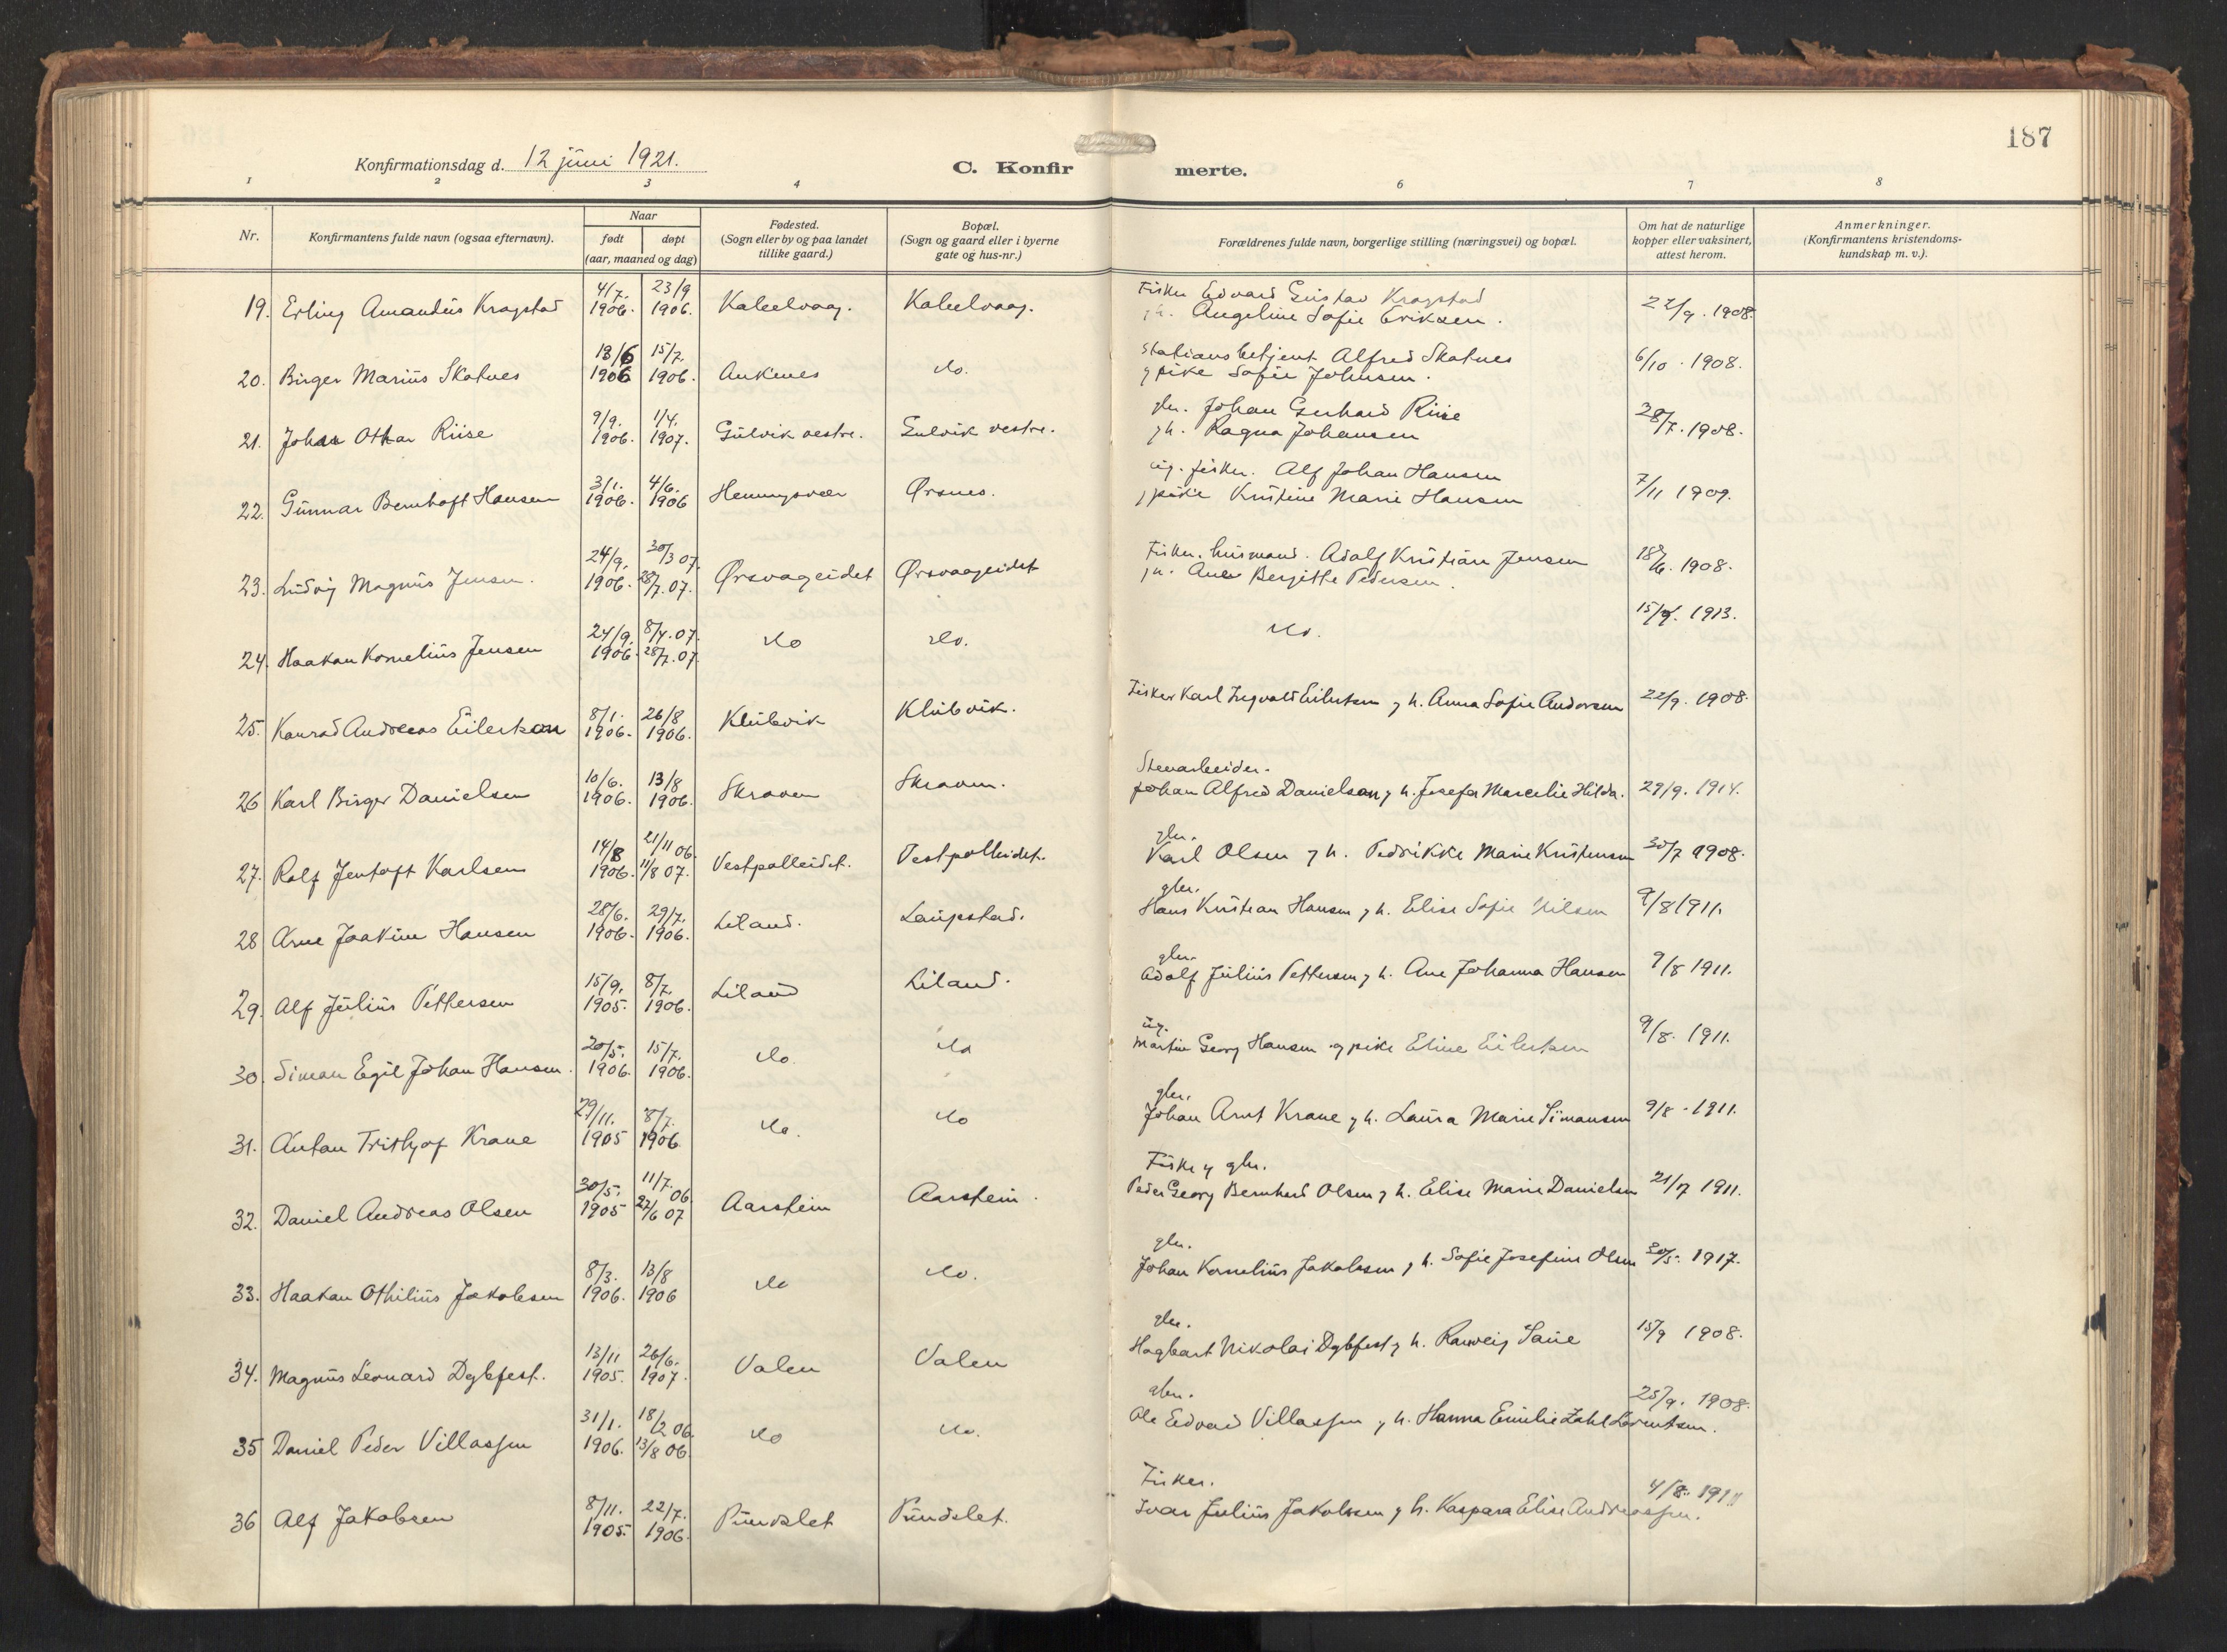 187
Konfirmationsdag d. 12 juni 1921.
C. Konfirmerte.
1 2 3 4 6 7 8
Nr.
Konfirmantens fulde navn (ogsaa efternavn).
Naar
født døpt
(aar, maaned og dag)
Fødested.
(Sogn eller by og paa landet
tillike gaard.)
Bopæl.
(Sogn og gaard eller i byerne
gate og hus-nr.)
Forældrenes fulde navn, borgerlige stilling (næringsvei) og bopæl.
Om hat de naturlige
kopper eller vaksinert,
attest herom.
Anmerkninger.
(Konfirmantens kristendoms-
kundskap m. v.).
4/7. 23/9 Fisker Edvard Gustav Kragstad
19. Erling Amandus Kragstad 1906. 1906. Kabelvaag. Kabelvaag. h. Angeline Sofie Eriksen. 22/9. 1908.
18/6 15/7. Stationsbetjent Alfred Skatnes
20. Birger Marius Skatnes 1906 1906. Ankenes do. pike Sofie Johnsen. 6/10. 1908.
9/9. 1/4. gbr. Johan Gerhard Riise
21. Johan Othar Riise 1906. 1907. Gulvik vestre. Gulvik vestre. h. Ragna Johansen 28/7. 1908.
3/1. 4/6. ug. fisker. Alf Johan Hansen
22. Gunnar Bernhoft Hansen 1906. 1906 Henningsvær Ørsnes. pike Kristine Marie Hansen 7/11 1909.
24/9. 30/3 07. Fisker. husmand. Adolf Kristian Jensen
23. Ludvig Magnus Jensen. 1906. 28/7. 07. Ørsvageidet Ørsvaageidet h. Ane Bergitte Pedersen. 18/6. 1908.
24/9. 8/4. 07. 15/9. 1913.
24. Haakon Kornelius Jensen 1906. 28/7. 07. do do. do.
8/1. 26/8 Fisker Karl Ingvald Eilertsen h. Anna Sofie Andorsen 22/9. 1908.
25. Konrad Andreas Eilertsen 1906. 1906. Klubvik Klubvik.
10/6. 13/8 Stenarbeider.
26 Karl Birger Danielsen 1906. 1906. Skraaven Skraaven. Johan Alfred Danielsen h. Josefa Marcelie Hilda. 29/9. 1914.
14/8 21/11 06. gbr.
27. Rolf Jentoft Karlsen 1906. 11/8 07. Vestpolleidet. Vestpolleidet. Karl Olsen h. Pedrikke Marie Kristensen 30/7 1908.
28/6. 29/7. gbr.
28 Arne Joakim Hansen 1906. 1906. Liland. Laupstad. Hans Kristian Hansen h. Elise Sofie Nilsen 9/8 1911.
15/9. 8/7. gbr.
29. Alf Julius Pettersen 1905. 1906. Liland Liland. Adolf Julius Pettersen h. Ane Johanna Hansen 9/8 1911.
20/5. 15/7. ug.
30. Simon Egil Johan Hansen. 1906. 1906. do. do Martin Georg Hansen og pike Eline Eilertsen 9/8. 1911.
29/11. 8/7. gbr.
31. Anton Fritjof Krane 1905 1906 do. do Johan Arnt Krane h. Laura Marie Simonsen 9/8. 1911.
30/5. 11/7. 06 Fisker gbr.
32. Daniel Andreas Olsen 1905 27/6 07 Aarstein Aarstein. Peder Georg Bernhard Olsen h. Elise Marie Danielsen 21/7 1911.
8/3. 13/8 gbr.
33. Haakon Othilius Jakobsen 1906. 1906 do do. Johan Kornelius Jakobsen h. Sofie Josefine Olsen 30/5. 1917.
13/11 26/6. gbr.
34. Magnus Leonard Dybfest. 1905. 1907. Valen Valen Hagbart Nikolai Dybfest h. Ranveig Saue 15/9 1908.
31/1. 18/2 06. gbr. 25/9. 1908.
35 Daniel Peder Villassen 1906. 13/8 06. do do. Ole Edvard Villassen h. Hanna Emilie Zahl Lorentsen.
8/11. 22/7. Fisker. 4/8. 1911
36 Alf Jakobsen 1905. 1906. Pundslet Pundslet. Ivar Julius Jakobsen h. Kaspara Elise Andreassen.